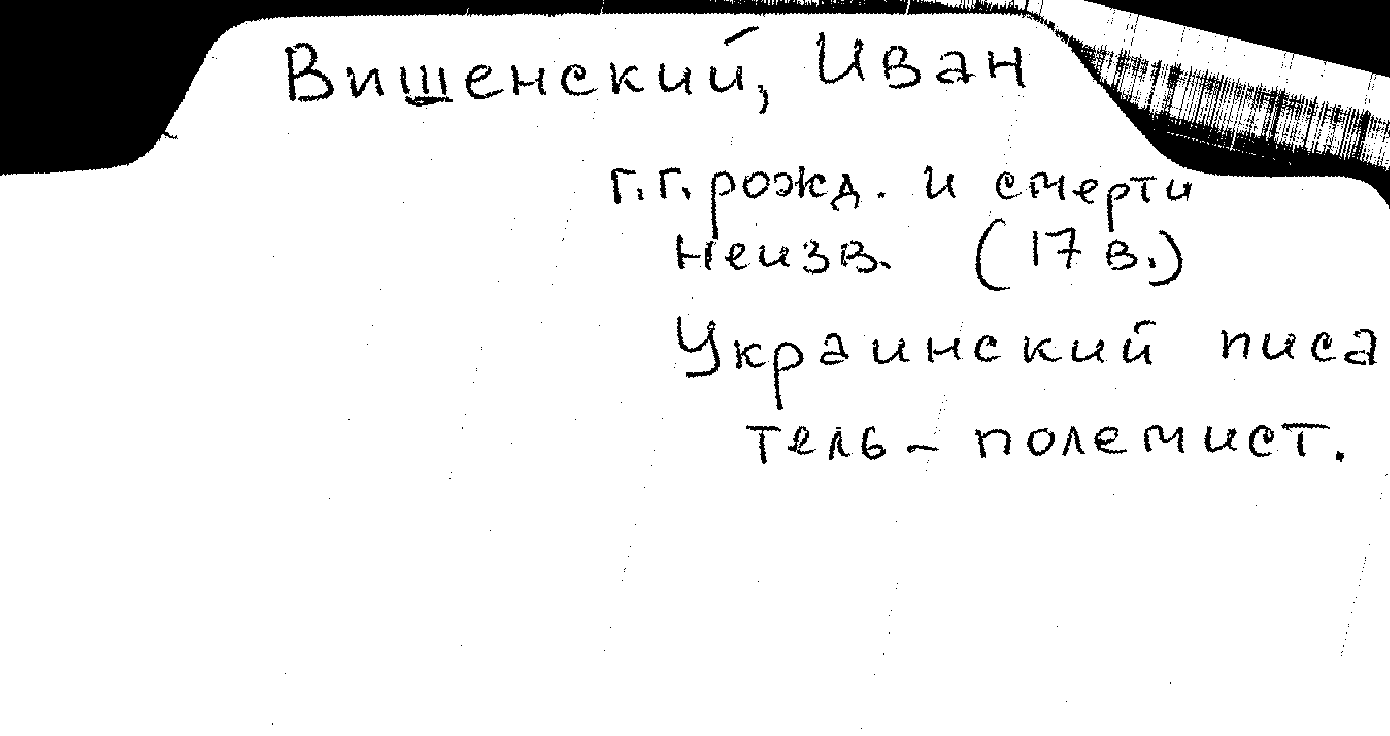 Вишенский, Иван
г.г. рожд. и смерти
неизв. (17 в.)
Украинский писа
тель - полемист.